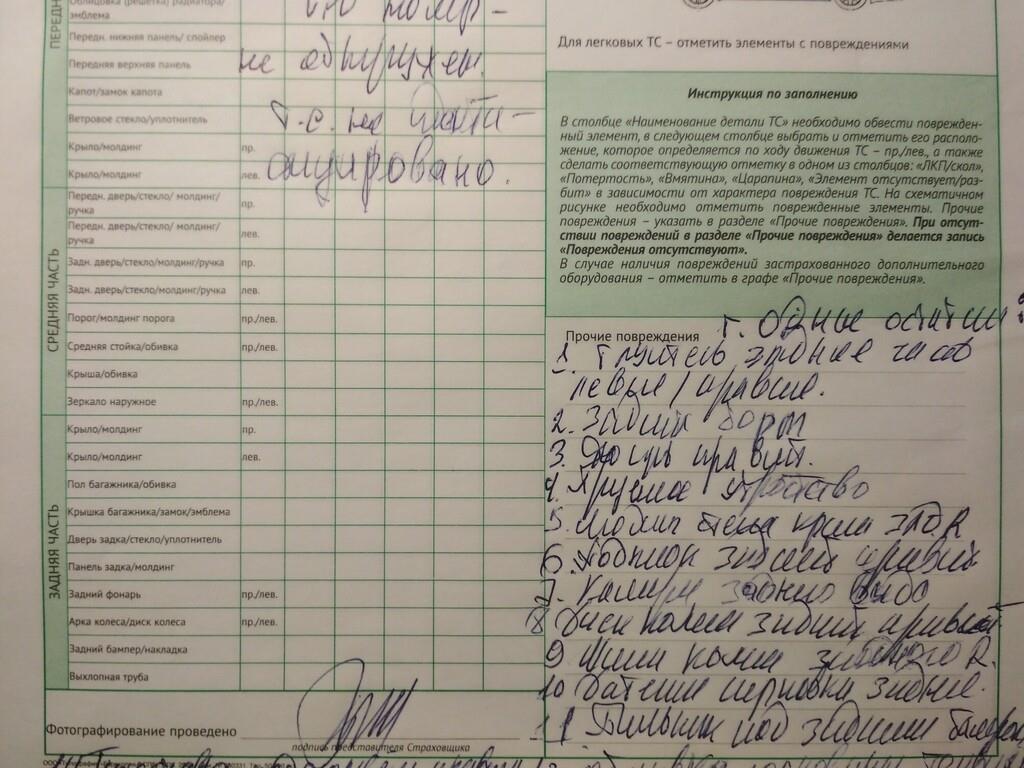 Облицовка (решетка) радиатора/
эмблема
номер-
Передн. нижняя панель/ спойлер
Передняя верхняя панель
не обнаружен.
Капот/замок капота
Ветровое стекло/уплотнитель
Т.С. не иденти-
Крыло/молдинг пр.
Крыло/молдинг лев.
фицировано.
СРЕДНЯЯ ЧАСТЬ
Передн. дверь/стекло/ молдинг/
ручка пр.
Передн. дверь/стекло/ молдинг/
ручка лев.
Задн. дверь/стекло/молдинг/ручка пр.
Задн. дверь/стекло/молдинг/ручка лев.
Порог/молдинг порога пр./лев.
Средняя стойка/обивка пр./лев.
Крыша/обивка
Зеркало наружное пр./лев.
ЗАДНЯЯ ЧАСТЬ
Крыло/молдинг пр.
Крыло/молдинг лев.
Пол багажника/обивка
Крышка багажника/замок/эмблема
Дверь задка/стекло/уплотнитель
Панель задка/молдинг
Задний фонарь пр./лев.
Арка колеса/диск колеса пр./лев.
Задний бампер/накладка
Выхлопная труба
Фотографирование проведено
подпись представителя Страховщика
Для легковых ТС – отметить элементы с повреждениями
Инструкция по заполнению
В столбце «Наименование детали ТС» необходимо обвести поврежден-
ный элемент, в следующем столбце выбрать и отметить его располо-
жение, которое определяется по ходу движения ТС – пр./лев., а также
сделать соответствующую отметку в одном из столбцов: «ЛКП/скол»,
«Потертость», «Вмятина», «Царапина», «Элемент отсутствует/раз-
бит» в зависимости от характера повреждения ТС. На схематичном
рисунке необходимо отметить поврежденные элементы. Прочие
повреждения – указать в разделе «Прочие повреждения». При отсут-
ствии повреждений в разделе «Прочие повреждения» делается запись
«Повреждения отсутствуют».
В случае наличия повреждений застрахованного дополнительного
оборудования – отметить в графе «Прочие повреждения».
Прочие повреждения
1. задние часов
левые / правые.
2. Задний борт
3. правый.
4. устройство
5. колеса
6. задний правый
7. Камера заднего вида
8 Диск колеса задний правый
9 Шина колеса заднего R.
10 Датчики парковки задние.
11 под задним